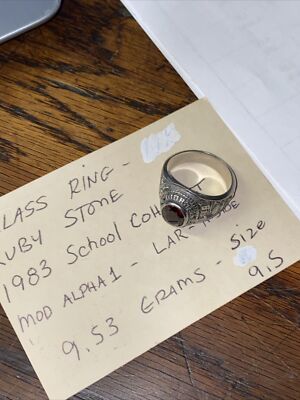 LASS RING -
RUBY STONE
1983 School COH
MOD ALPHA 1 - LAR-
9.53 GRAMS - Size
9.5